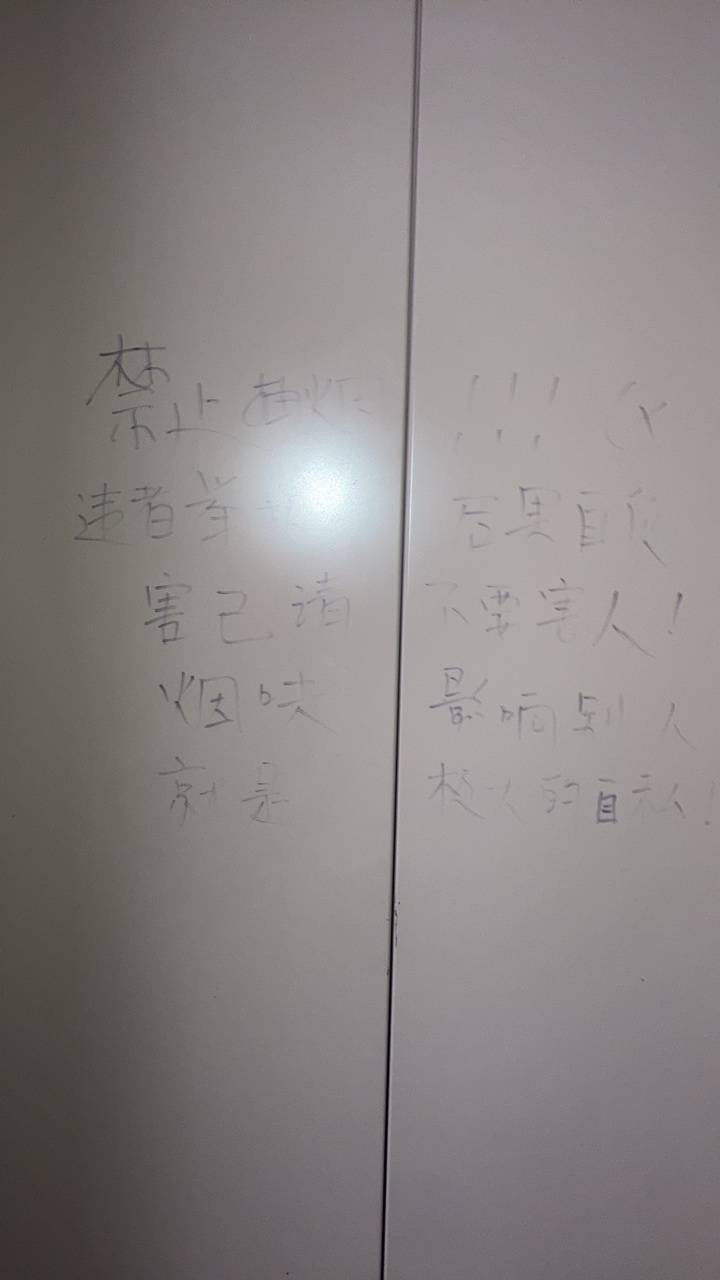 禁止抽烟!!!
违者举 后果自负
害己请不要害人!
烟味影响别人
就是极大的自私!